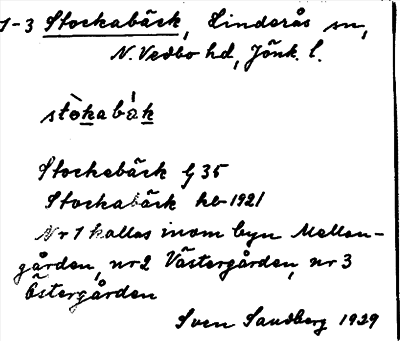 1-3 Stockabäck, Linderås sn,
N. Vedbo hd, Jönk. l.
stòkabák
Stockabäck G 35
Stockabäck hb 1921
Nr 1 kallas inom byn Mellan-
gården, nr 2 Västergården, nr 3
Östergården
Sven Sandberg 1929